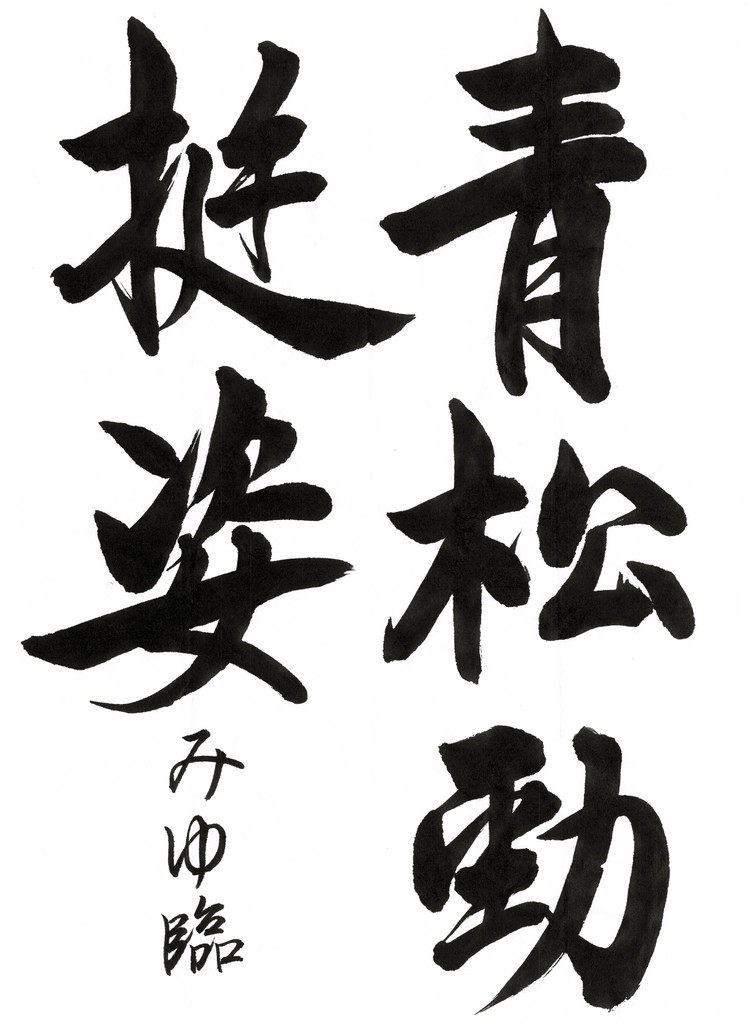 青松勁
挺姿
みゆ臨